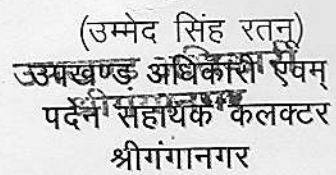 (उम्मेद सिंह रतनू)
उपखण्ड अधिकारी एवम्
पदेन सहायक कलक्टर
श्रीगंगानगर